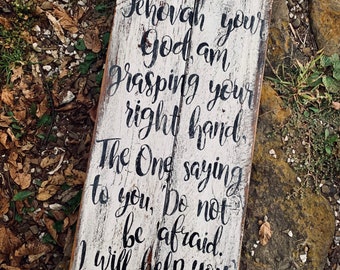 Jehovah your
God, am
grasping your
right hand,
The One saying
to you, 'Do not
be afraid.
I will help you.